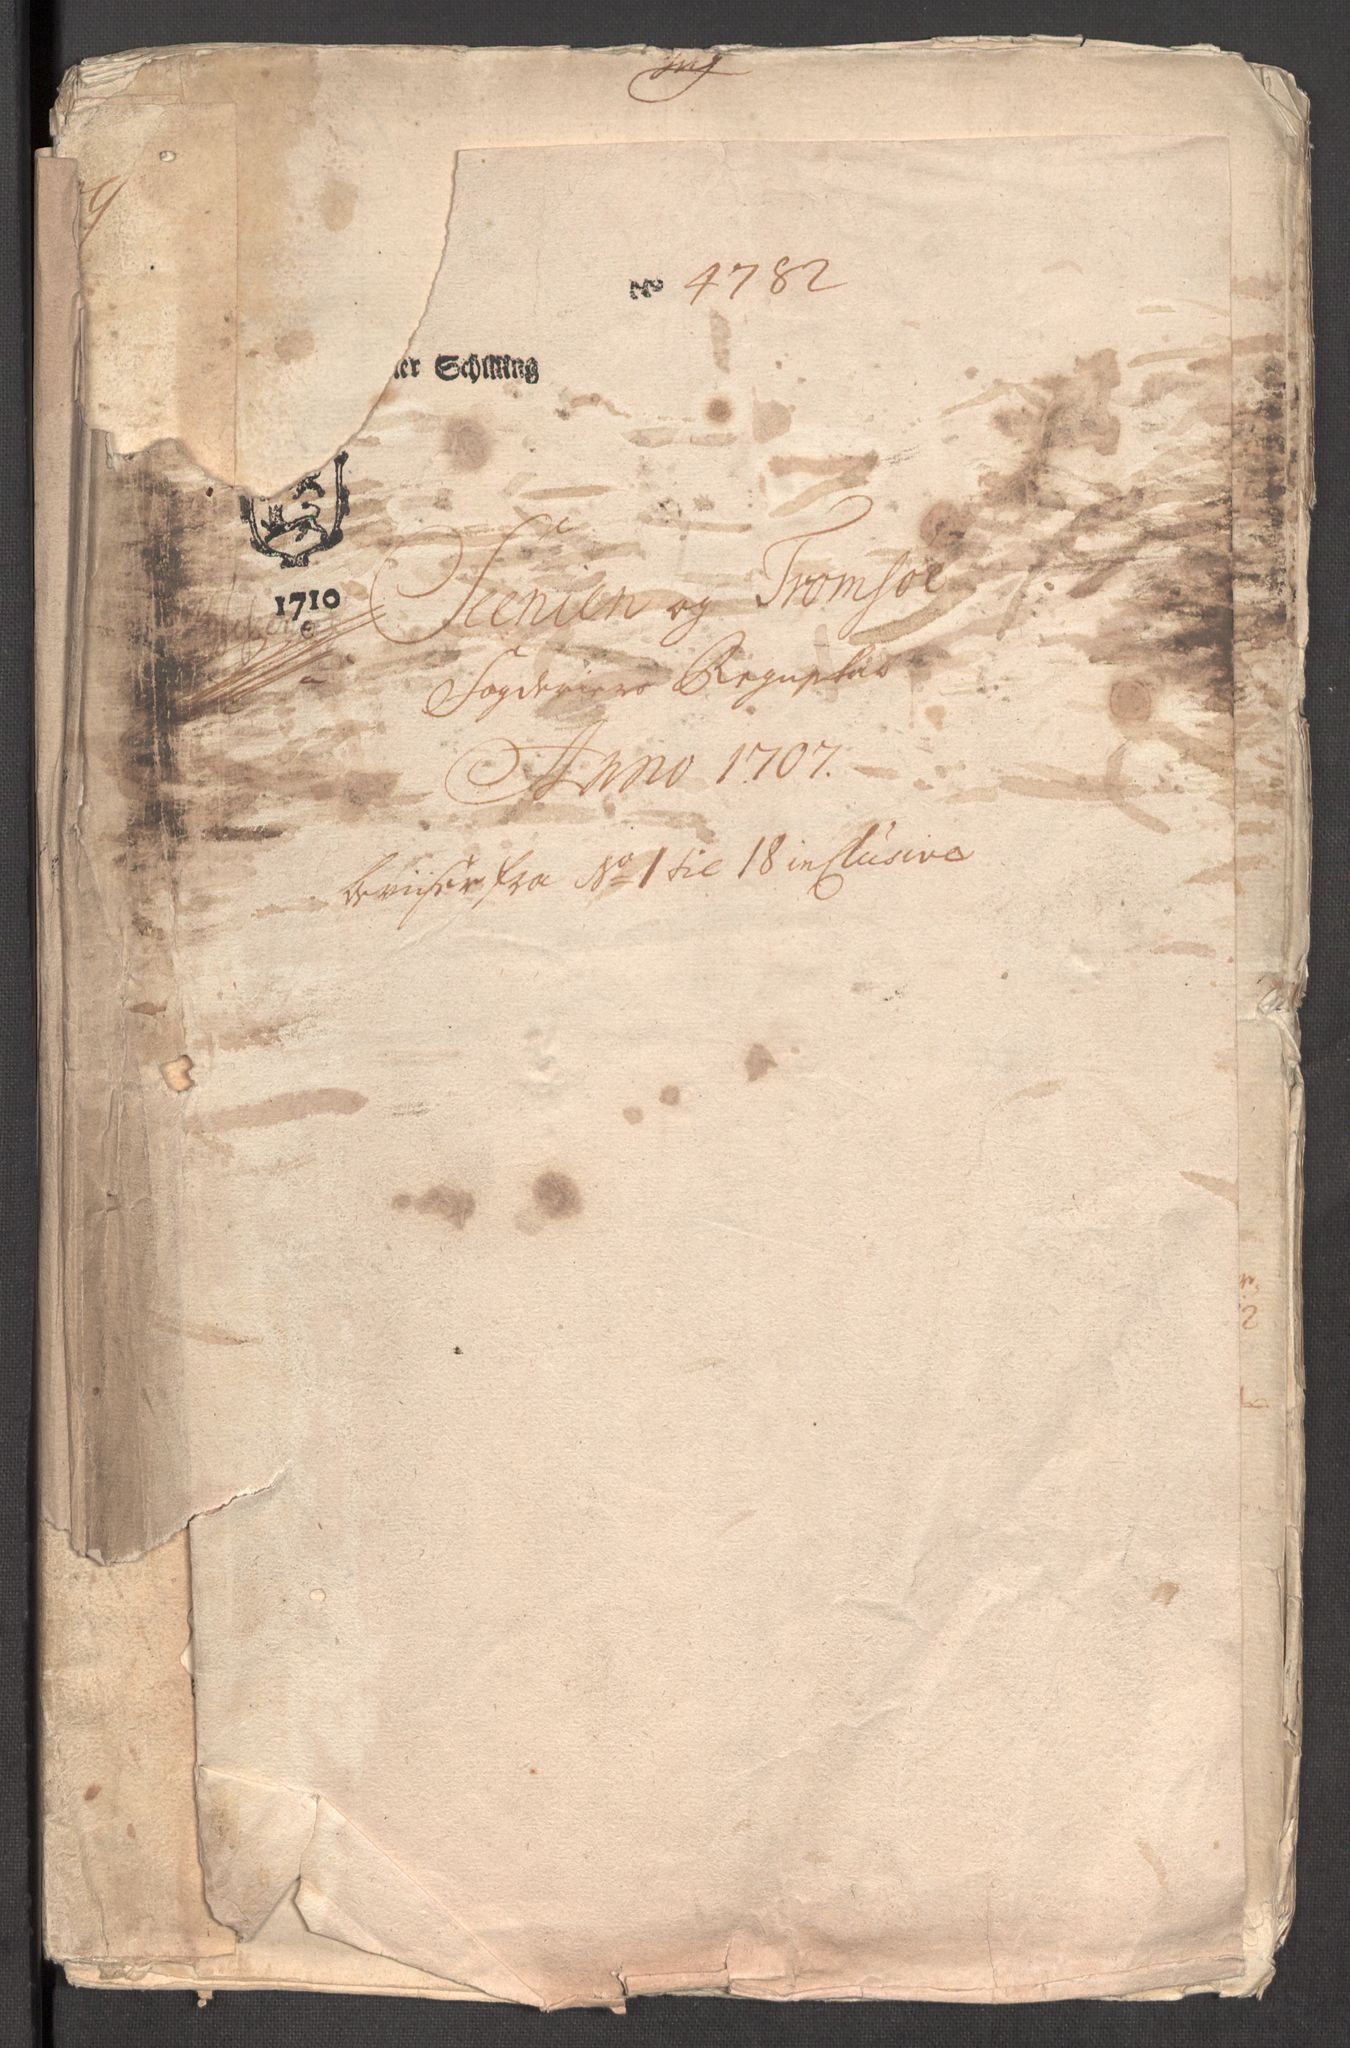 No 4782
Schilling
1710
Seenien og Tromsøe
Fogderiers Regnskab
Anno 1707.
beviiser fra No 1 til 18 inclusive